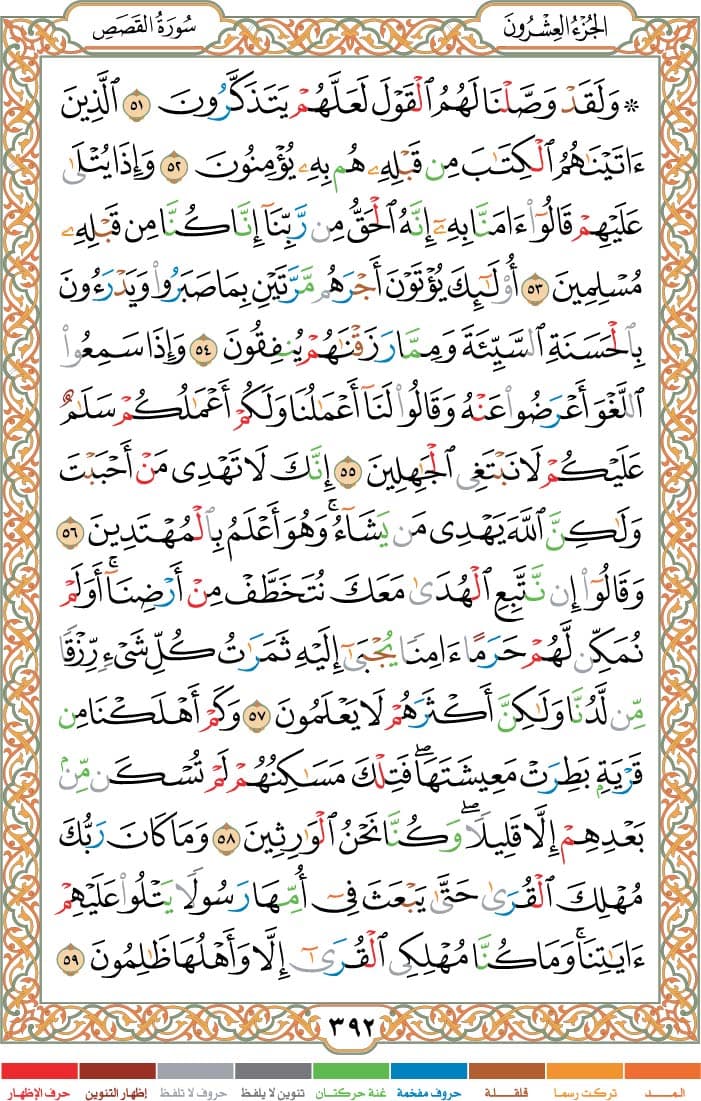 الجُزْءُ العِشْرُونَ
سُورَةُ القَصَصِ
۞ وَلَقَدْ وَصَّلْنَا لَهُمُ ٱلْقَوْلَ لَعَلَّهُمْ يَتَذَكَّرُونَ ٥١ ٱلَّذِينَ
ءَاتَيْنَٰهُمُ ٱلْكِتَٰبَ مِن قَبْلِهِۦ هُم بِهِۦ يُؤْمِنُونَ ٥٢ وَإِذَا يُتْلَىٰ
عَلَيْهِمْ قَالُوٓا۟ ءَامَنَّا بِهِۦٓ إِنَّهُ ٱلْحَقُّ مِن رَّبِّنَآ إِنَّا كُنَّا مِن قَبْلِهِۦ
مُسْلِمِينَ ٥٣ أُو۟لَٰٓئِكَ يُؤْتَوْنَ أَجْرَهُم مَّرَّتَيْنِ بِمَا صَبَرُوا۟ وَيَدْرَءُونَ
بِٱلْحَسَنَةِ ٱلسَّيِّئَةَ وَمِمَّا رَزَقْنَٰهُمْ يُنفِقُونَ ٥٤ وَإِذَا سَمِعُوا۟
ٱللَّغْوَ أَعْرَضُوا۟ عَنْهُ وَقَالُوا۟ لَنَآ أَعْمَٰلُنَا وَلَكُمْ أَعْمَٰلُكُمْ سَلَٰمٌ
عَلَيْكُمْ لَا نَبْتَغِى ٱلْجَٰهِلِينَ ٥٥ إِنَّكَ لَا تَهْدِى مَنْ أَحْبَبْتَ
وَلَٰكِنَّ ٱللَّهَ يَهْدِى مَن يَشَآءُ ۚ وَهُوَ أَعْلَمُ بِٱلْمُهْتَدِينَ ٥٦
وَقَالُوٓا۟ إِن نَّتَّبِعِ ٱلْهُدَىٰ مَعَكَ نُتَخَطَّفْ مِنْ أَرْضِنَآ ۚ أَوَلَمْ
نُمَكِّن لَّهُمْ حَرَمًا ءَامِنًا يُجْبَىٰٓ إِلَيْهِ ثَمَرَٰتُ كُلِّ شَىْءٍ رِّزْقًا
مِّن لَّدُنَّا وَلَٰكِنَّ أَكْثَرَهُمْ لَا يَعْلَمُونَ ٥٧ وَكَمْ أَهْلَكْنَا مِن
قَرْيَةٍۭ بَطِرَتْ مَعِيشَتَهَا ۖ فَتِلْكَ مَسَٰكِنُهُمْ لَمْ تُسْكَن مِّنۢ
بَعْدِهِمْ إِلَّا قَلِيلًا ۖ وَكُنَّا نَحْنُ ٱلْوَٰرِثِينَ ٥٨ وَمَا كَانَ رَبُّكَ
مُهْلِكَ ٱلْقُرَىٰ حَتَّىٰ يَبْعَثَ فِىٓ أُمِّهَا رَسُولًا يَتْلُوا۟ عَلَيْهِمْ
ءَايَٰتِنَا ۚ وَمَا كُنَّا مُهْلِكِى ٱلْقُرَىٰٓ إِلَّا وَأَهْلُهَا ظَٰلِمُونَ ٥٩
٣٩٢
المـــد تركت رسما قلقـــلة حروف مفخمة غنة حركتـان تنوين لا يلفظ حروف لا تلفظ إظهار التنوين حرف الإظهار